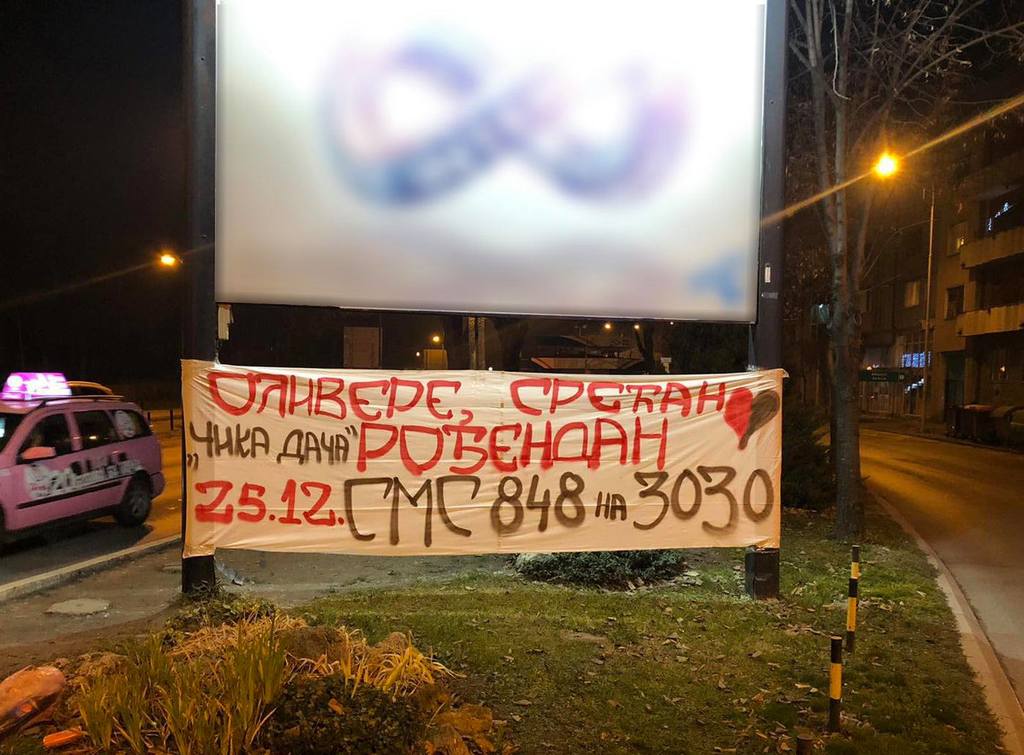 ОЛИВЕРЕ, СРЕЋАН
„ЧИКА ДАЧА" РОЂЕНДАН
25.12. СМС 848 НА 3030